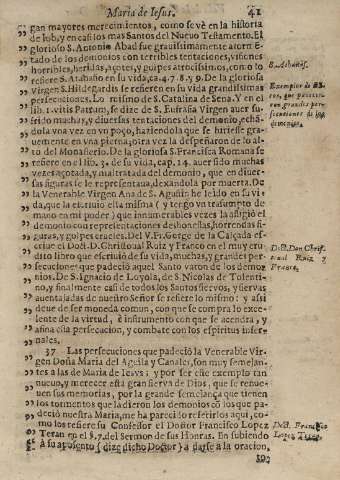 Maria de Iesus. 41
gan mayores merecimientos, como se vè en la historia
de Iob, y en casi los mas Santos del Nuevo Testamento. El
glorioso S. Antonio Abad fue gravissimamente atormē-
tado de los demonios con terribles tentaciones, visiones
horribles, heridas, açotes, y golpes atrocissimos, como lo
refiere S. Atabasio en su vida, ca. 4. 7. 8. y 9. De la gloriosa
Virgen S. Hildegardis se refieren en su vida grandissimas
persecuciones. Lo mismo de S. Catalina de Sena. Y en el
lib. 1. vitis Patram, se dize de S. Eufrasia Virgen auer su-
frido muchas, y diuersas tentaciones del demonio, echā-
dola vna vez en vn poço, haziendola que se hiriesse gra-
uemente en vna pierna; otra vez la despeñaron de lo al-
to del Monasterio. De la gloriosa S. Francisca Romana se
refiere en el lib. 3. de su vida, cap. 14. auer sido muchas
vezes açotada, y maltratada del demonio, que en diuer-
sas figuras se le representaua, dexandola por muerta. De
la Venerable Virgen Ana de S. Agustin he leido en su vi-
da, que la escriuiò ella misma ( y tergo vn trasumpto de
mano en mi poder ) que innumerables vezes la afligiò el
demonio con representaciones deshonestas, horrendas fi-
guras, y golpes crueles. Del V. Fr. Iorge de la Calçada es-
criue el Doct. D. Christoual Ruiz y Franco en el muy eru-
dito libro que escriuiò de su vida, muchas, y grandes per-
secuciones que padeciò aquel Santo varon de los demo-
nios. De S. Ignacio de Loyola, de S. Nicolas de Tolenti-
no, y finalmente casi de todos los Santos sieruos, y sieruas
auentajadas de nuestro Señor se refiere lo mismo: y assi
deue de ser moneda comun, con que se compra lo exce-
lente de la virtud, è instrumento con que se acendra, y
afina esta persecucion, y combate con los espiritus infer-
nales.
37 Las persecuciones que padeciò la Venerable Vir-
gen Doña Maria del Aguila y Canales, son muy semejan-
tes a las de Maria de Iesvs; y por ser este exemplo tan
nueuo, y merecer esta gran sierua de Dios, que se renue-
uen sus memorias, por la grande semejança que tienen
los tormentos que la dieron los demonios cō los que pa-
deciò nuestra Maria, me ha parecido referirlos aqui, co-
mo los refiere su Confessor el Doctor Francisco Lopez
Teran en el §. 7. del Sermon de sus Honras. En subiendo
à su aposento ( dize dicho Doctor ) a darse a la oracion,
B. Athanas.
que padecieron
grandes per-
secuciones de los
demonios.
Doct. Don Chris-
toual Ruiz y
Franco.
Doct. Francisco
Lopez Teran.